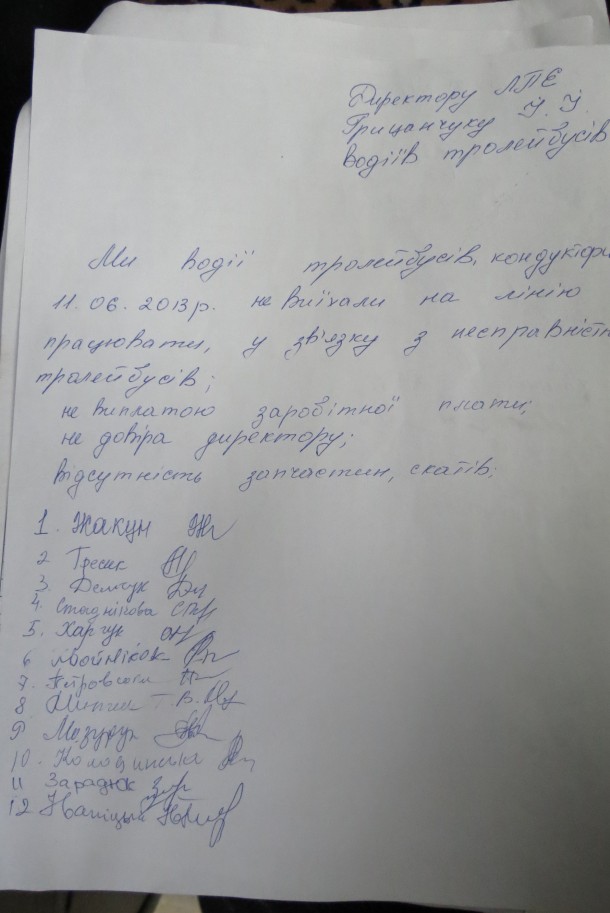 Директору ЛПЄ
Грицанчуку І. І.
водіїв тролейбусів
Ми водії тролейбусів, кондуктори
11. 06. 2013р. не виїхали на лінію
працювати, у зв'язку з несправністю
тролейбусів;
не виплатою заробітної плати;
не довіра директору;
відсутність запчастин, скатів;
1. Жакун
2 Тресик
3. Демчук
4. Стаднікова
5. Харчук
6
7. Петровська
8
9 Мазурук
10. Колодинська
11 Зарадюк
12